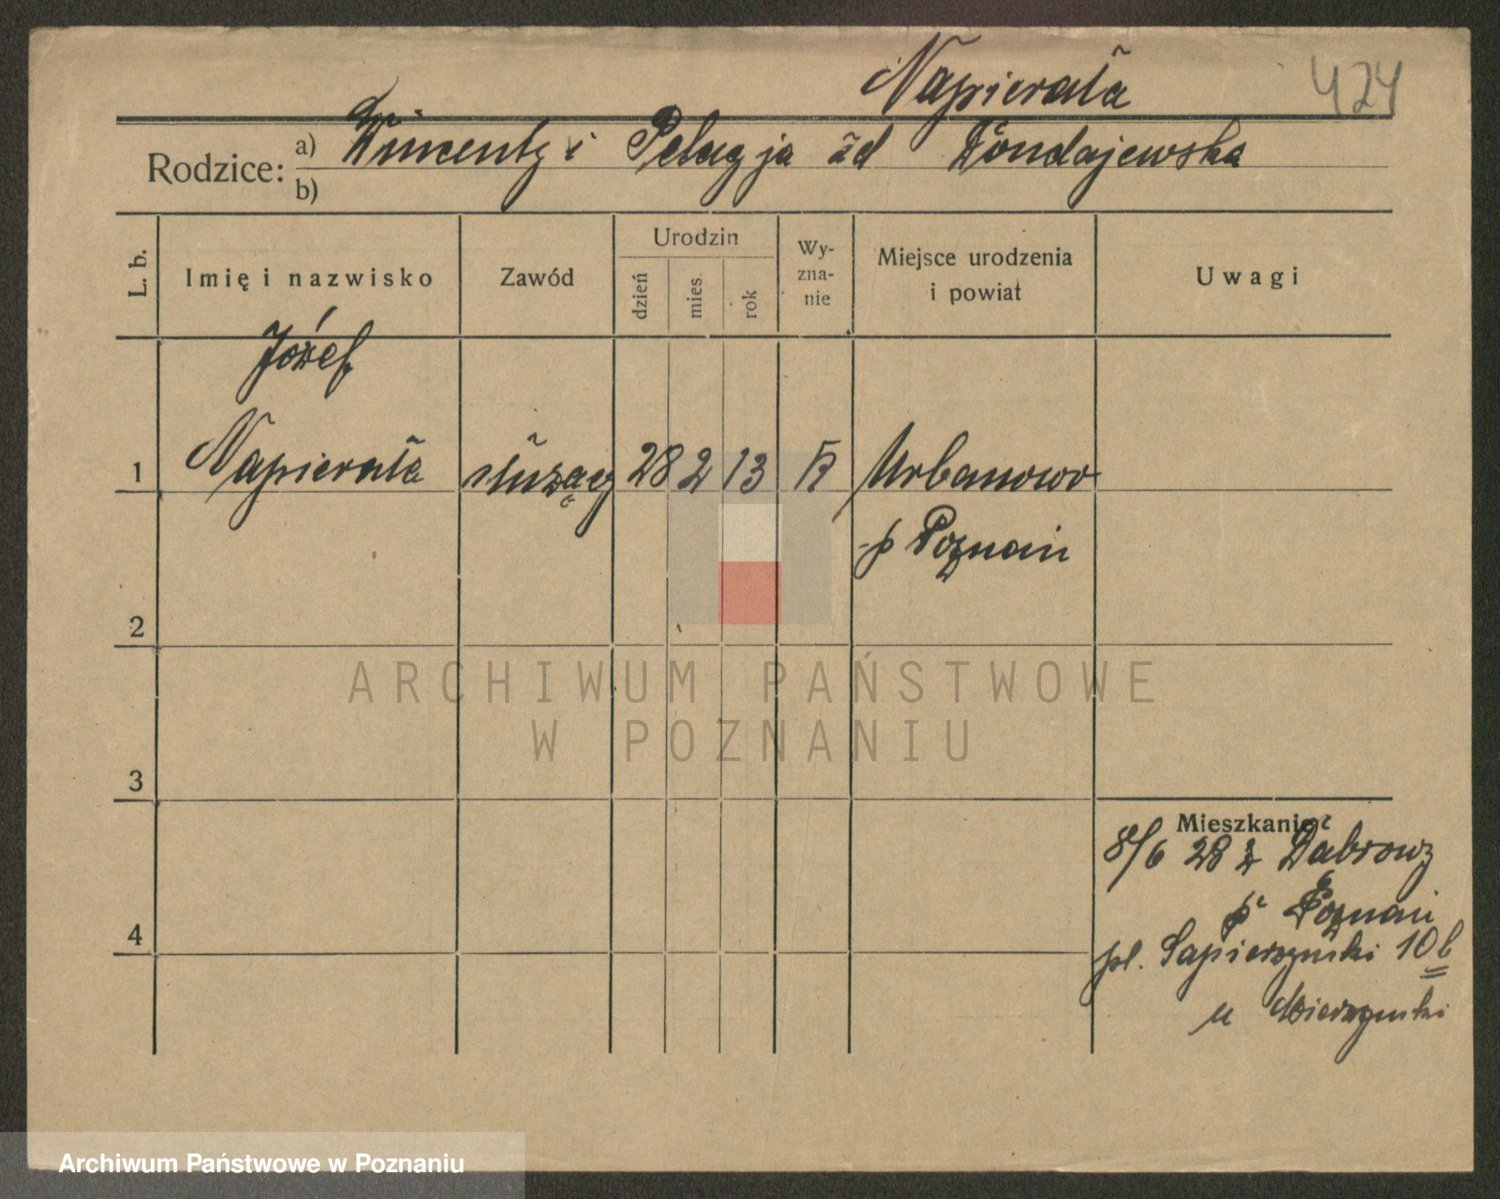 Napierała 424
Rodzice: a) Wincenty i Pelagja zd Dondajewska
b)
L. b.
Imię i nazwisko
Zawód
Urodzin
dzień
mies.
rok
Wy-
zna-
nie
Miejsce urodzenia
i powiat
Uwagi
Józef
1 Napierała służący 28 2 13 K Urbanowo
p Poznań
2
3
4
Mieszkanie
8/6 28 z Dąbrowy
p Poznań
pl. Sapieżyński 10 b
u Mierzyński
ARCHIWUM PAŃSTWOWE
W POZNANIU
Archiwum Państwowe w Poznaniu